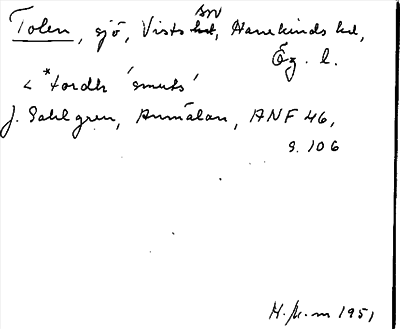 Tolen, sjö, Vists sn, Hanekinds hd,
Ög. l.
< *tordh 'smuts'
J. Sahlgren, Anmälan, ANF 46,
s. 106
H. M-m 1951